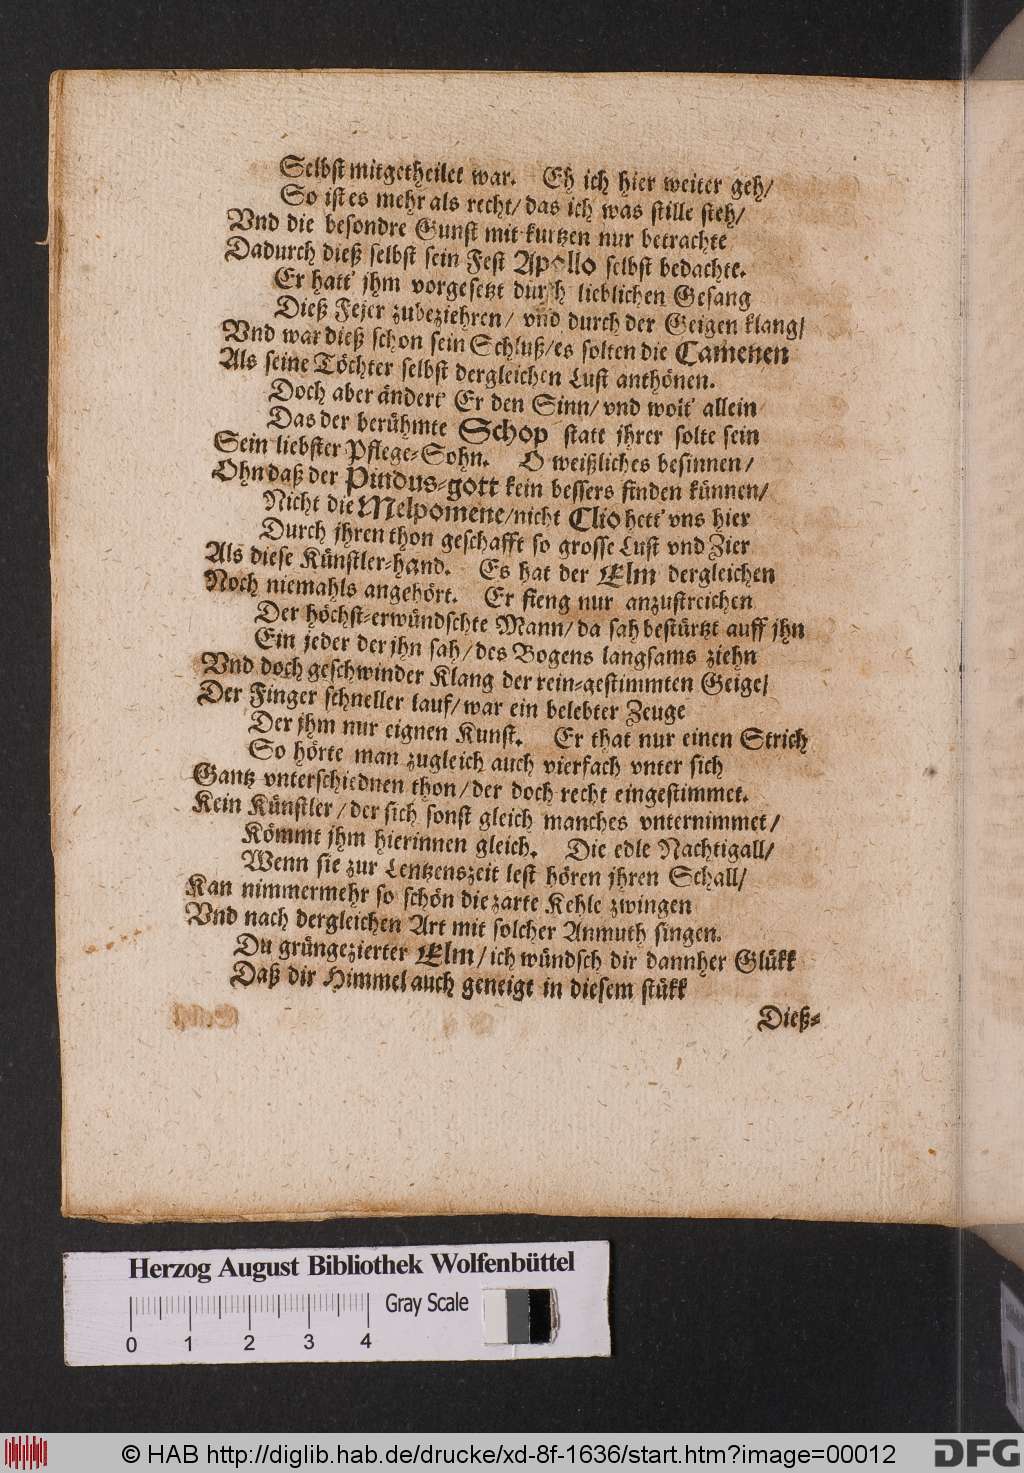 Selbst mitgetheilet war. Eh ich hier weiter geh/
So ist es mehr als recht/ das ich was stille steh/
Vnd die besondre Gunst mit kurtzen nur betrachte
Dadurch dieß selbst sein Fest Apollo selbst bedachte.
Er hatt' jhm vorgesetzt durch lieblichen Gesang
Dieß Fejer zubeziehren/ vnd durch der Geigen klang/
Vnd war dieß schon sein Schluß/ es solten die Camenen
Als seine Töchter selbst dergleichen Lust anthönen.
Doch aber ändert' Er den Sinn/ vnd wolt' allein
Das der berühmte Schop statt jhrer solte sein
Sein liebster Pflege-Sohn. O weißliches besinnen/
Ohn daß der Pindus-gott kein bessers finden künnen/
Nicht die Melpomene/ nicht Clio hett' vns hier
Durch jhren thon geschafft so grosse Lust vnd Zier
Als diese Künstler-hand. Es hat der Elm dergleichen
Noch niemahls angehört. Er fieng nur anzustreichen
Der höchst-erwündschte Mann/ da sah bestürtzt auff jhn
Ein jeder der jhn sah/ des Bogens langsams ziehn
Vnd doch geschwinder Klang der rein-gestimmten Geige/
Der Finger schneller lauf/ war ein belebter Zeuge
Der jhm nur eignen Kunst. Er that nur einen Strich
So hörte man zugleich auch vierfach vnter sich
Gantz vnterschiednen thon/ der doch recht eingestimmet.
Kein Künstler/ der sich sonst gleich manches vnternimmet/
Kömmt jhm hierinnen gleich. Die edle Nachtigall/
Wenn sie zur Lentzenszeit lest hören jhren Schall/
Kan nimmermehr so schön die zarte Kehle zwingen
Vnd nach dergleichen Art mit solcher Anmuth singen.
Du grüngezierter Elm/ ich wündsch dir dannher Glükk
Daß dir Himmel auch geneigt in diesem stükk
Dieß-
Herzog August Bibliothek Wolfenbüttel
Gray Scale
0 1 2 3 4
© HAB http://diglib.hab.de/drucke/xd-8f-1636/start.htm?image=00012
DFG